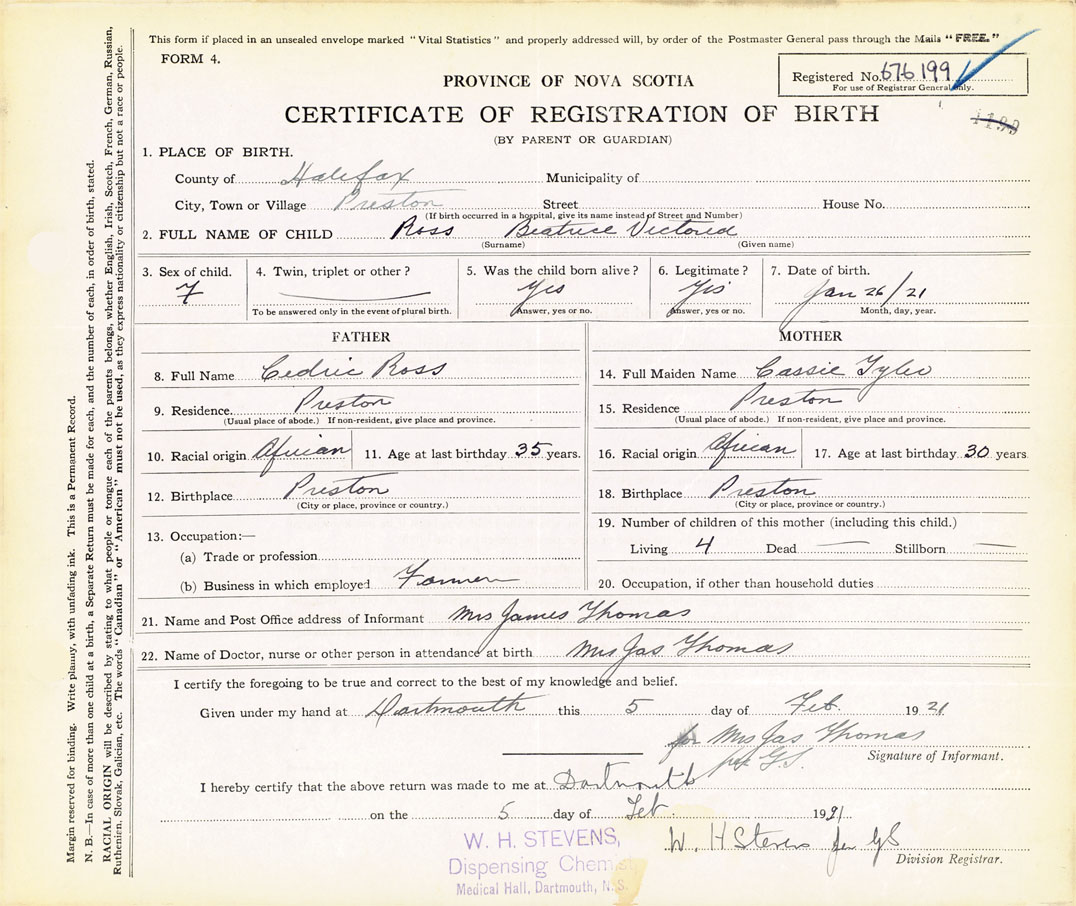 This form if placed in an unsealed envelope marked "Vital Statistics" and properly addressed will, by order of the Postmaster General pass through the Mails "FREE."
FORM 4.
Registered No. 676199
For use of Registrar General only.
PROVINCE OF NOVA SCOTIA
CERTIFICATE OF REGISTRATION OF BIRTH
1199
(BY PARENT OR GUARDIAN)
1. PLACE OF BIRTH.
County of Halifax Municipality of
City, Town or Village Preston Street House No.
(If birth occurred in a hospital, give its name instead of Street and Number)
2. FULL NAME OF CHILD Ross Beatrice Victored
(Surname) (Given name)
3. Sex of child. 4. Twin, triplet or other? 5. Was the child born alive? 6. Legitimate? 7. Date of birth.
F Yes Yes Jan 26/21
To be answered only in the event of plural birth. Answer, yes or no. Answer, yes or no. Month, day, year.
FATHER
8. Full Name Cedric Ross
9. Residence. Preston
(Usual place of abode.) If non-resident, give place and province.
10. Racial origin African 11. Age at last birthday 35 years.
12. Birthplace Preston
(City or place, province or country.)
13. Occupation:—
(a) Trade or profession
(b) Business in which employed Farmer
MOTHER
14. Full Maiden Name Cassie Tyler
15. Residence Preston
(Usual place of abode.) If non-resident, give place and province.
16. Racial origin African 17. Age at last birthday 30 years
18. Birthplace Preston
(City or place, province or country.)
19. Number of children of this mother (including this child.)
Living 4 Dead — Stillborn —
20. Occupation, if other than household duties
21. Name and Post Office address of Informant Mrs James Thomas
22. Name of Doctor, nurse or other person in attendance at birth Mrs Jas Thomas
I certify the foregoing to be true and correct to the best of my knowledge and belief.
Given under my hand at Dartmouth this 5 day of Feb. 1921
for Mrs Jas Thomas
per G.S.
Signature of Informant.
I hereby certify that the above return was made to me at Dartmouth
on the 5 day of Feb 1921
W. H Stevens per GS
Division Registrar.
W. H. STEVENS,
Dispensing Chemist
Medical Hall, Dartmouth, N. S.
Margin reserved for binding. Write plainly, with unfading ink. This is a Permanent Record.
N. B.—In case of more than one child at a birth, a Separate Return must be made for each, and the number of each, in order of birth, stated.
RACIAL ORIGIN will be described by stating to what people or tongue each of the parents belongs, whether English, Irish, Scotch, French, German, Russian,
Ruthenien, Slovak, Galician, etc. The words "Canadian" or "American" must not be used, as they express nationality or citizenship but not a race or people.